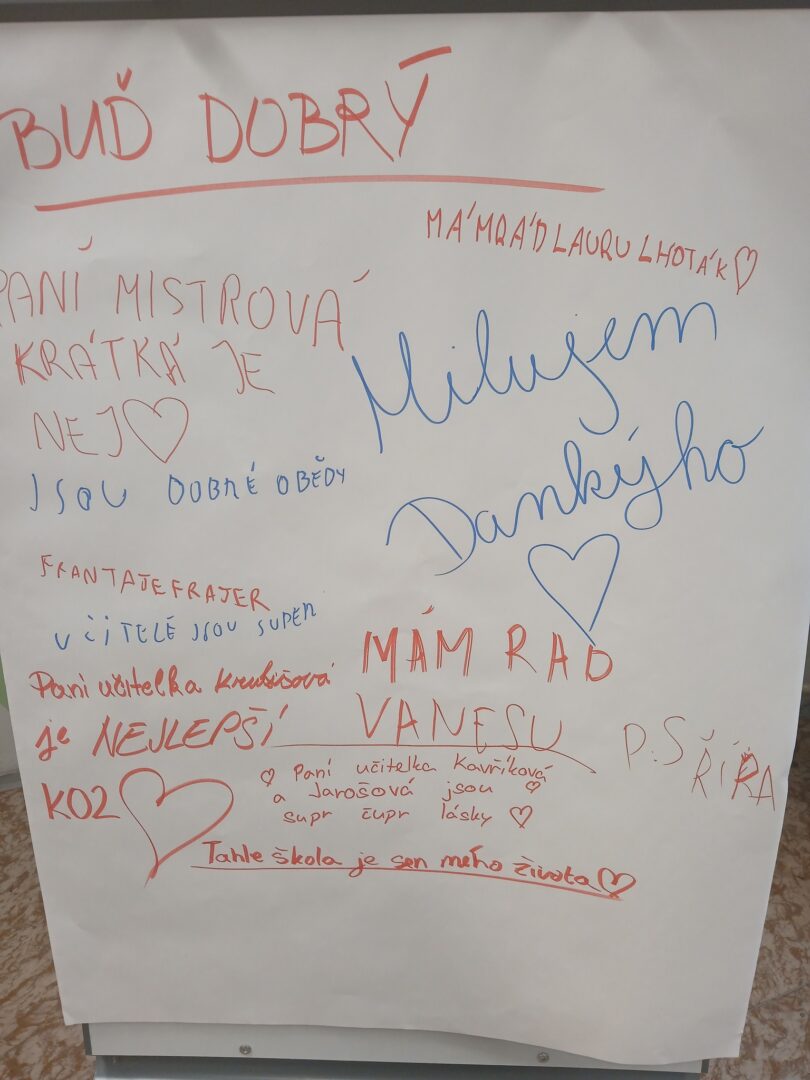 BUĎ DOBRÝ
MÁM RÁD LAURU LHOTÁK ♡
PANÍ MISTROVÁ
KRÁTKÁ JE
NEJ ♡
JSOU DOBRÉ OBĚDY
Milujem
Dankýho
♡
FRANTA JE FRAJER
UČITELÉ JSOU SUPER
Paní učitelka
je NEJLEPŠÍ
KO2 ♡
MÁM RAD
VANESU
P.S ŘÍŘA
♡ Paní učitelka Kavříková
a Jarošová jsou ♡
supr čupr lásky ♡
Tahle škola je sen mého života ♡